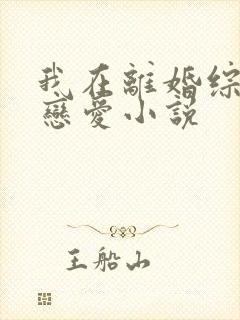 我在離婚綜
戀愛小説
王船山